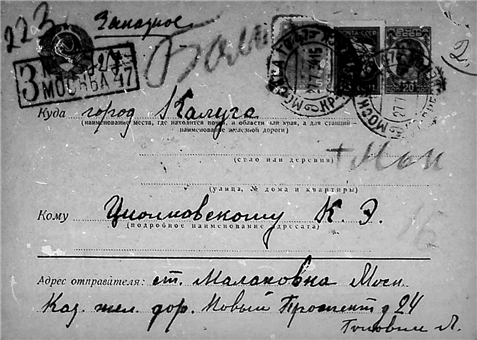 223 Заказное
З МОСКВА 47
Куда город Калуга
(наименование места, где находится почта, и области или края, а для станций—
наименование железной дороги)
(село или деревня)
(улица, № дома и квартиры)
Кому Циолковскому К. Э.
(подробное наименование адресата)
Адрес отправителя: ст. Малаховка Моск.
Каз. жел. дор. Новый Проспект д 24